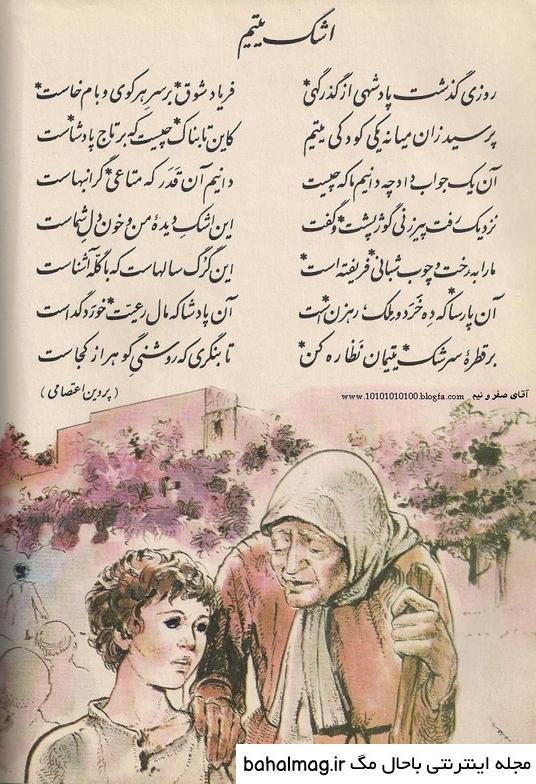 اشک یتیم
روزی گذشت پادشهی از گذرگهی* فریاد شوق* بر سر هر کوی و بام خاست*
پرسید زان میانه یکی کودکی یتیم کاین تابناک* چیست که بر تاج پادشاست
آن یک جواب داد چه دانیم ما که چیست دانیم آن قَدَر که متاعی* گرانبهاست
نزدیک رفت پیرزنی گوژپشت* و گفت این اشکِ دیدهٔ من و خونِ دلِ شماست
ما را به رخت و چوب شبانی* فریفته است* این گرگ سالهاست که با گلّه آشناست
آن پارسا* که دِه خَرَد و مِلک، رهزن* است آن پادشا که مال رعیّت* خورَد گداست
بر قطرهٔ سرشک* یتیمان نَظاره کن* تا بنگری که روشنیِ گوهر از کجاست
(پروین اعتصامی)
آقای صفر و نیم www.10101010100.blogfa.com
مجله اینترنتی باحال مگ bahalmag.ir